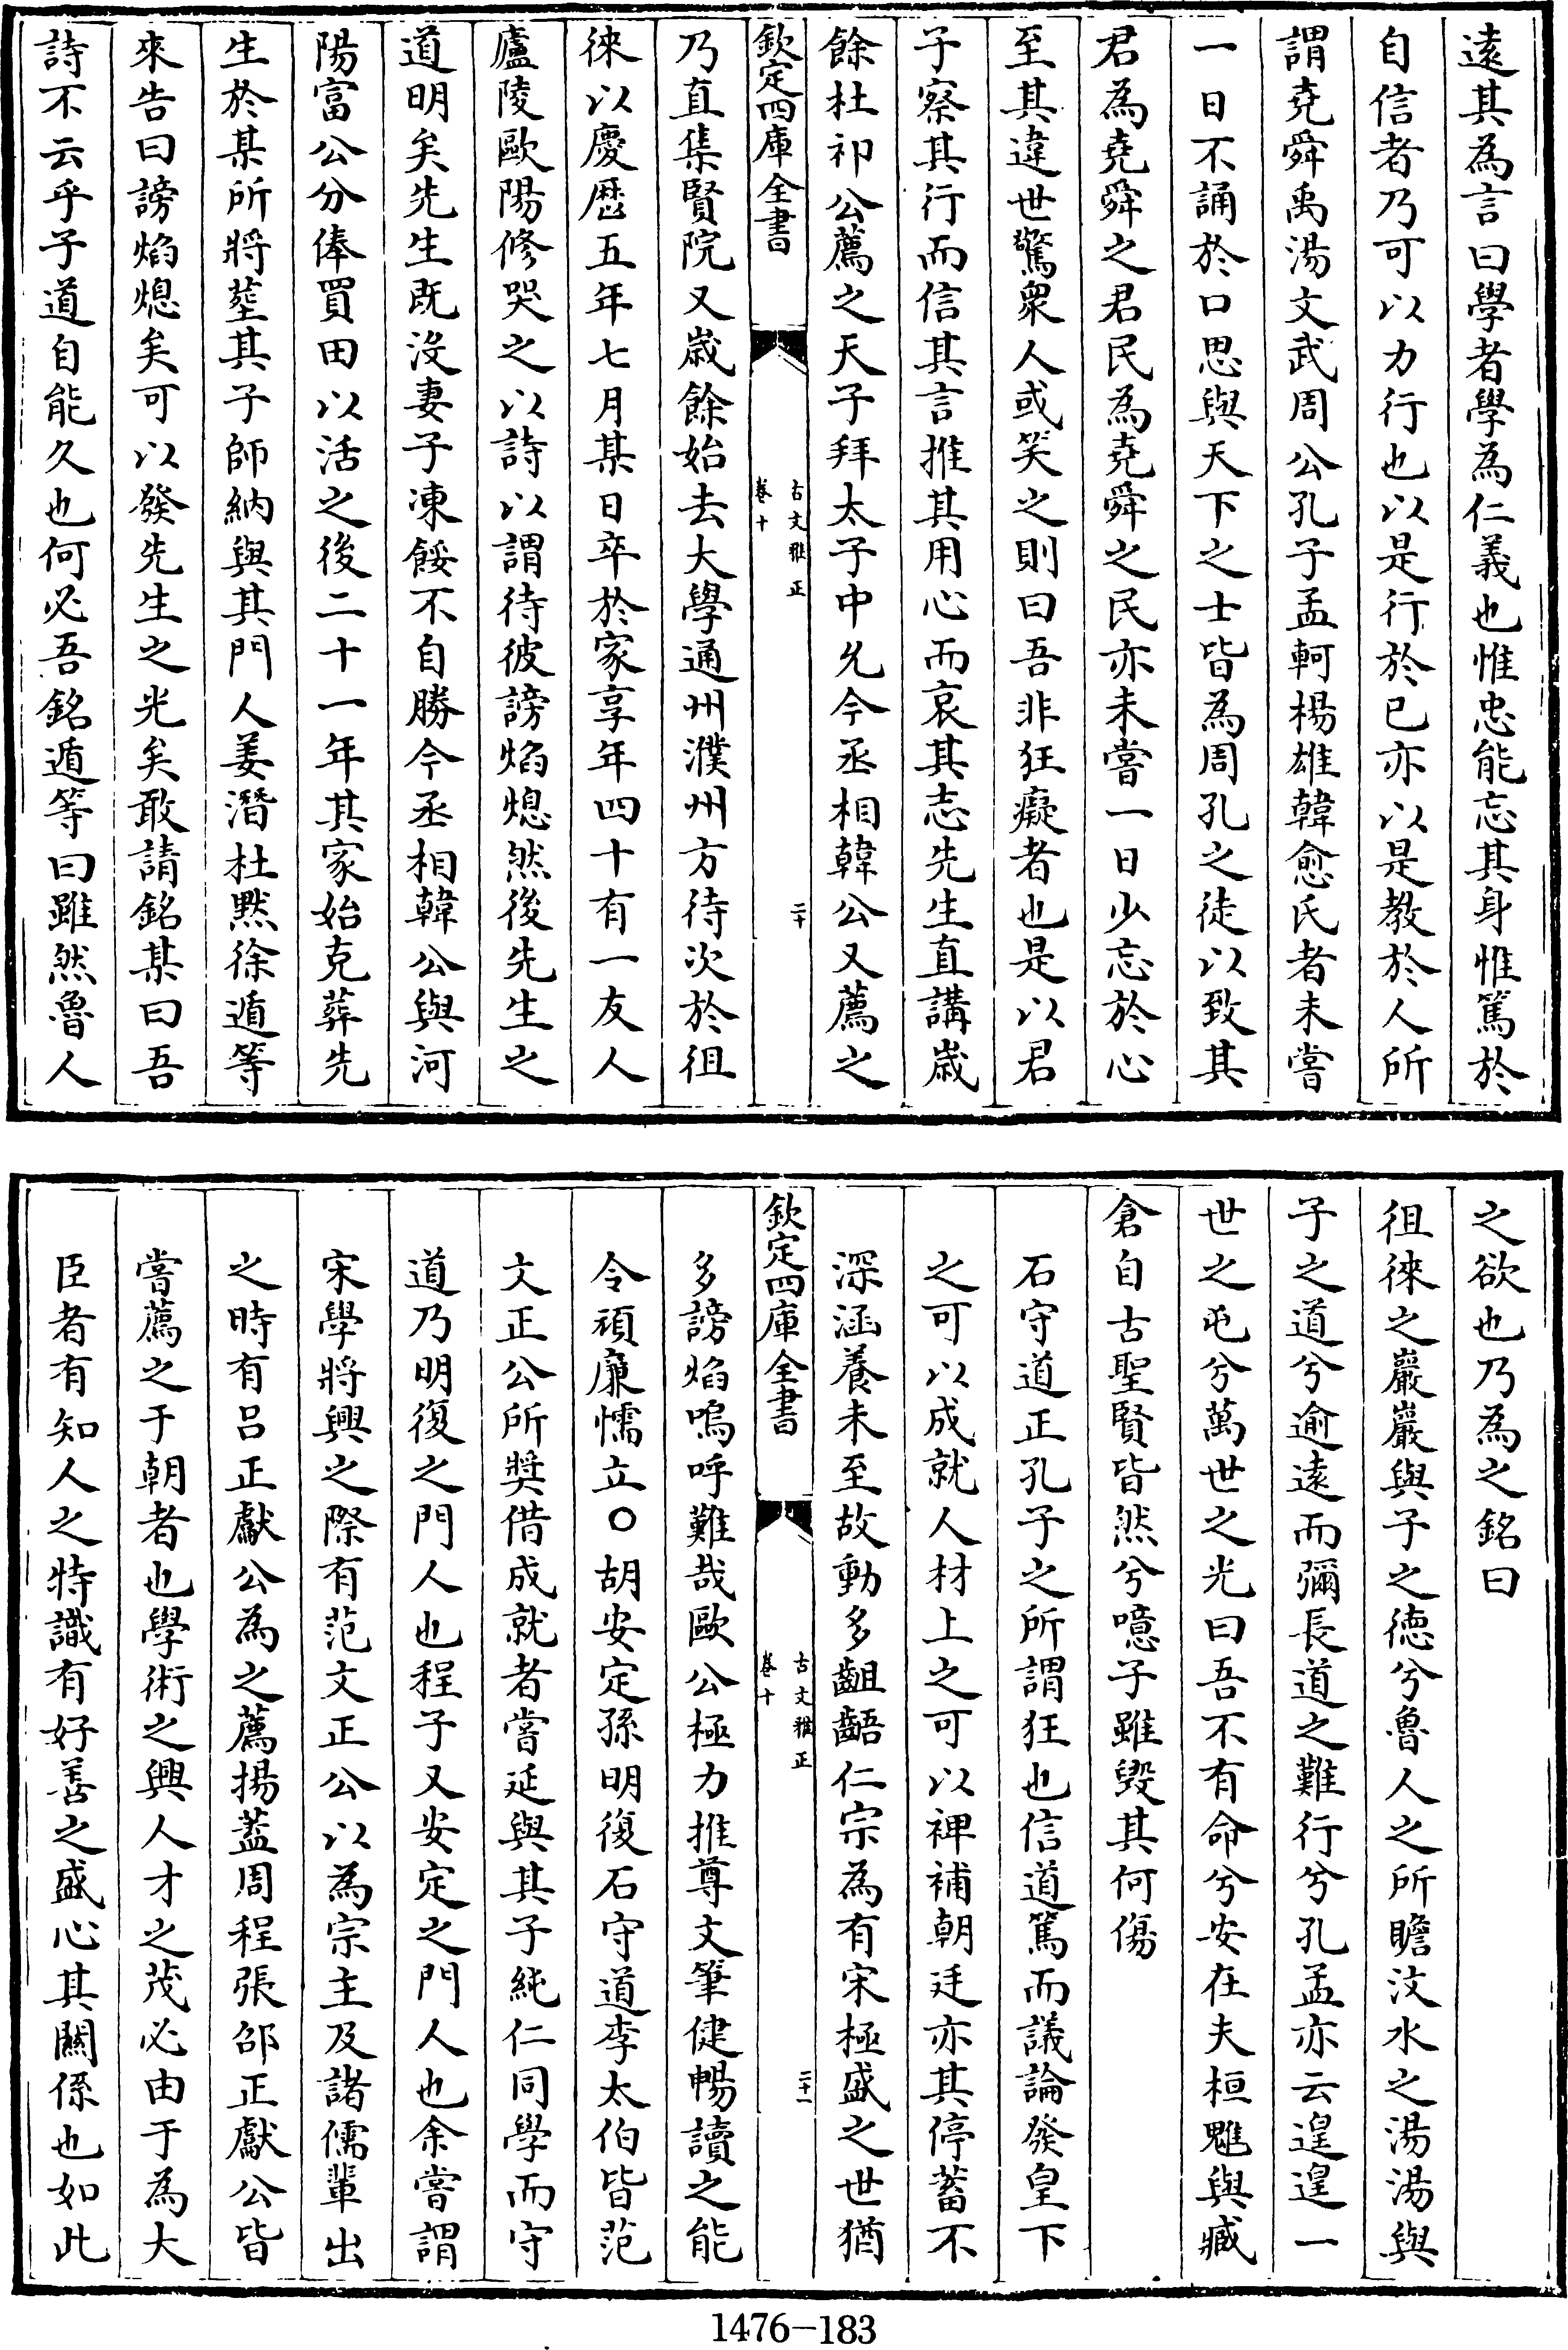 遠其為言曰學者學為仁義也惟忠能忘其身惟篤於
自信者乃可以力行也以是行於已亦以是教於人所
謂堯舜禹湯文武周公孔子孟軻楊雄韓愈氏者未嘗
一日不誦於口思與天下之士皆為周孔之徒以致其
君為堯舜之君民為堯舜之民亦未嘗一日少忘於心
至其違世驚衆人或笑之則曰吾非狂癡者也是以君
子察其行而信其言推其用心而哀其志先生直講歲
餘杜祁公薦之天子拜太子中允今丞相韓公又薦之
欽定四庫全書
古文雅正
卷十
二十
乃直集賢院又歲餘始去大學通州濮州方待次於徂
徠以慶歴五年七月某日卒於家享年四十有一友人
廬陵歐陽修哭之以詩以謂待彼謗焰熄然後先生之
道明矣先生既沒妻子凍餒不自勝今丞相韓公與河
陽富公分俸買田以活之後二十一年其家始克葬先
生於某所將塟其子師納與其門人姜潛杜黙徐遁等
來告曰謗焰熄矣可以發先生之光矣敢請銘某曰吾
詩不云乎子道自能久也何必吾銘遁等曰雖然魯人
之欲也乃為之銘曰
徂徠之巖巖與子之徳兮魯人之所瞻汶水之湯湯與
子之道兮逾遠而彌長道之難行兮孔孟亦云遑遑一
世之屯兮萬世之光曰吾不有命兮安在夫桓魋與臧
倉自古聖賢皆然兮噫子雖毀其何傷
石守道正孔子之所謂狂也信道篤而議論發皇下
之可以成就人材上之可以裨補朝廷亦其停蓄不
深涵養未至故動多齟齬仁宗為有宋極盛之世猶
欽定四庫全書
古文雅正
卷十
二十一
多謗焰嗚呼難哉歐公極力推尊文筆健暢讀之能
令頑廉懦立〇胡安定孫明復石守道李太伯皆范
文正公所奬借成就者嘗延與其子純仁同學而守
道乃明復之門人也程子又安定之門人也余嘗謂
宋學將興之際有范文正公以為宗主及諸儒輩出
之時有呂正獻公為之薦揚蓋周程張邵正獻公皆
嘗薦之于朝者也學術之興人才之茂必由于為大
臣者有知人之特識有好善之盛心其關係也如此
1476-183